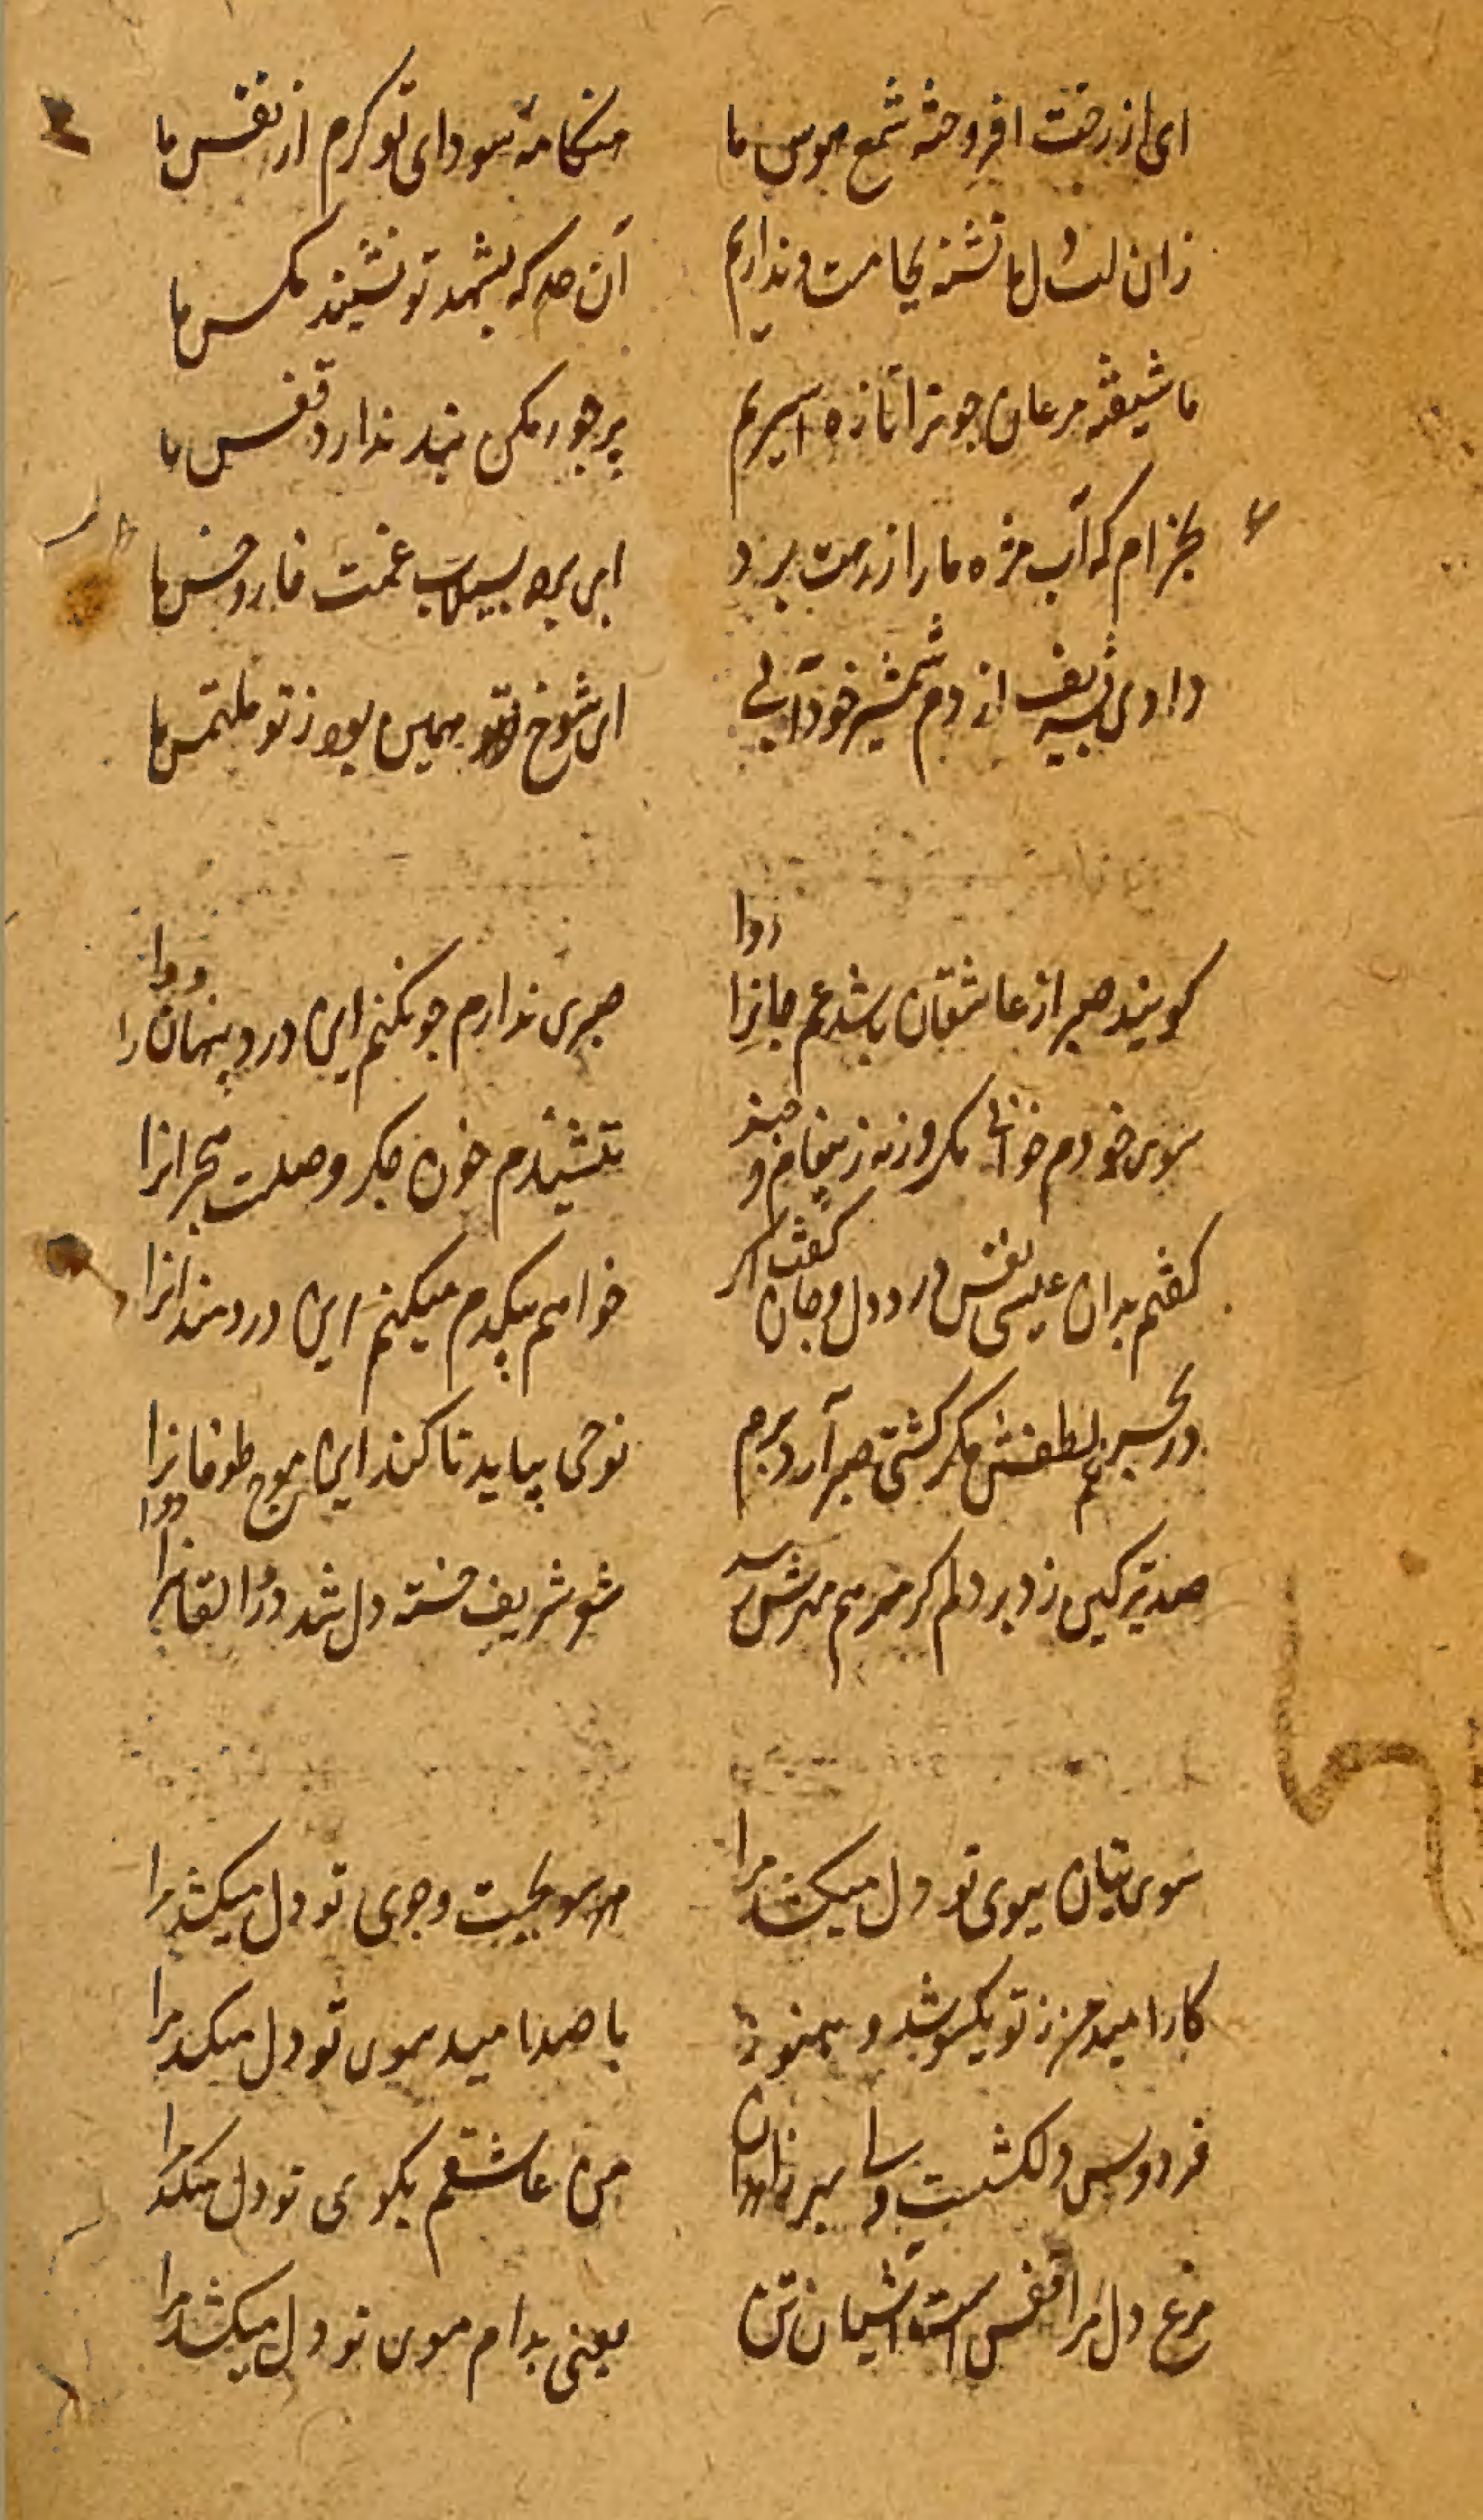 ای از رخت افروخته شمع هوس ما هنکامهٔ سودای تو کرم از نفس ما
زان لب دل ما تشنه بجامت و نداریم آن حد که بشهد تو نشیند مکس ما
ما شیفته مرغان جو ترا تازه اسیریم پر جور مکن بند ندارد قفس ما
بخرام که آب مژه ما را ز رهت برد ای برده بسیلاب غمت خار و خس ما
دادی بشریف از دم شمشیر خود آبی ای شوخ همین بود ز تو ملتمس ما
روا
کویند صبر از عاشقان باشد غم جانرا صبری ندارم جو نکنم این درد پنهان را
دوا
سوی خودم خوانی مکر روزی ز پیغام و ننشیندم خون جکر وصلت هجرانرا
کفتم بدان عیسی نفس درد دل و جان کفت اکر خواهم بیکدم میکنم این دردمندانرا
در بحر غم لطفش مکر کشتی صبر آرد برم نوحی بیاید تا کند این موج طوفانرا
دوا
صد تیر کین زد بر دلم کر مرهم مهرش رسد شو شریف خسته دل شد درد القانرا
سوی بتان ببوی تو دل میکشد مرا هر سو بجست وجوی تو دل میکشد مرا
کار امیدم ز تو یکسو شد و هنوز با صد امید سوی تو دل میکشد مرا
فردوس دلکشست ولی بهر زاهدان من عاشقم بکوی تو دل میکشد مرا
مرغ دل مرا قفس است آشیان تن یعنی بدام موی تو دل میکشد مرا